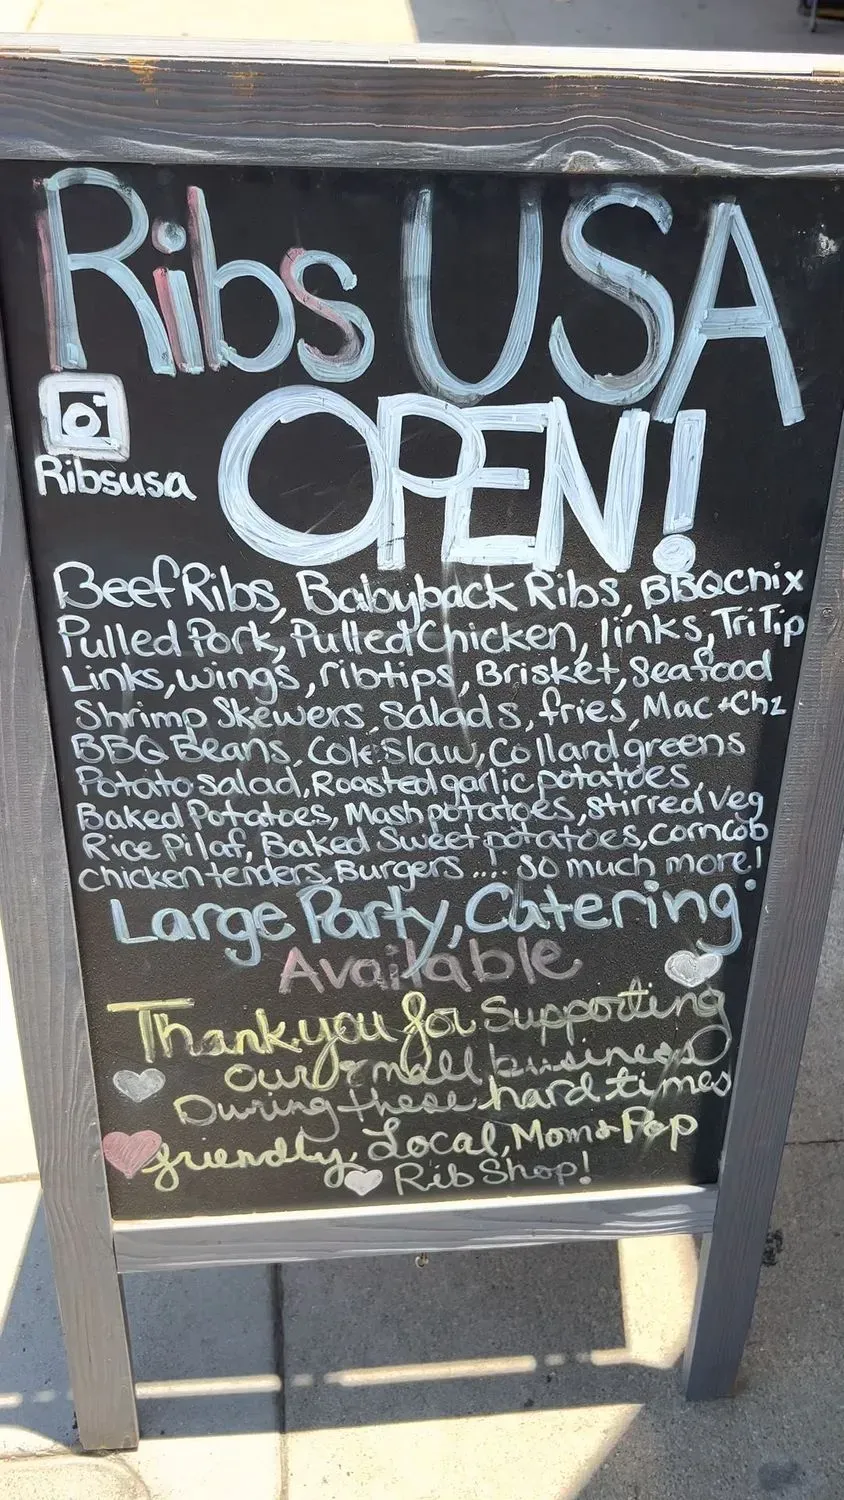 Ribs USA
OPEN!
Ribsusa
Beef Ribs, Babyback Ribs, BBQ Chix
Pulled Pork, Pulled Chicken, links, Tri Tip
Links, wings, ribtips, Brisket, Seafood
Shrimp Skewers Salads, fries, Mac+Chz
BBQ Beans, Cole Slaw, Collard greens
Potato Salad, Roasted garlic potatoes,
Baked Potatoes, Mash potatoes, Stirred Veg
Rice Pilaf, Baked Sweet potatoes, corn cob
Chicken tenders, Burgers .... So much more!
Large Party, Catering
Available
Thank you for Supporting
our small business
During these hard times
friendly, Local, Mom & Pop
Rib Shop!